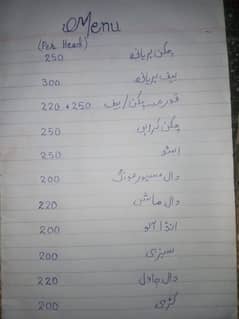 Menu
(Per Head)
250 چکن بریانی
300 بیف بریانی
220+250 قورمہ چکن/بیف
250 چکن کڑاہی
250 اسٹو
200 دال مسور مونگ
220 دال ماش
200 انڈا آلو
200 سبزی
220 دال چاول
200 کڑی